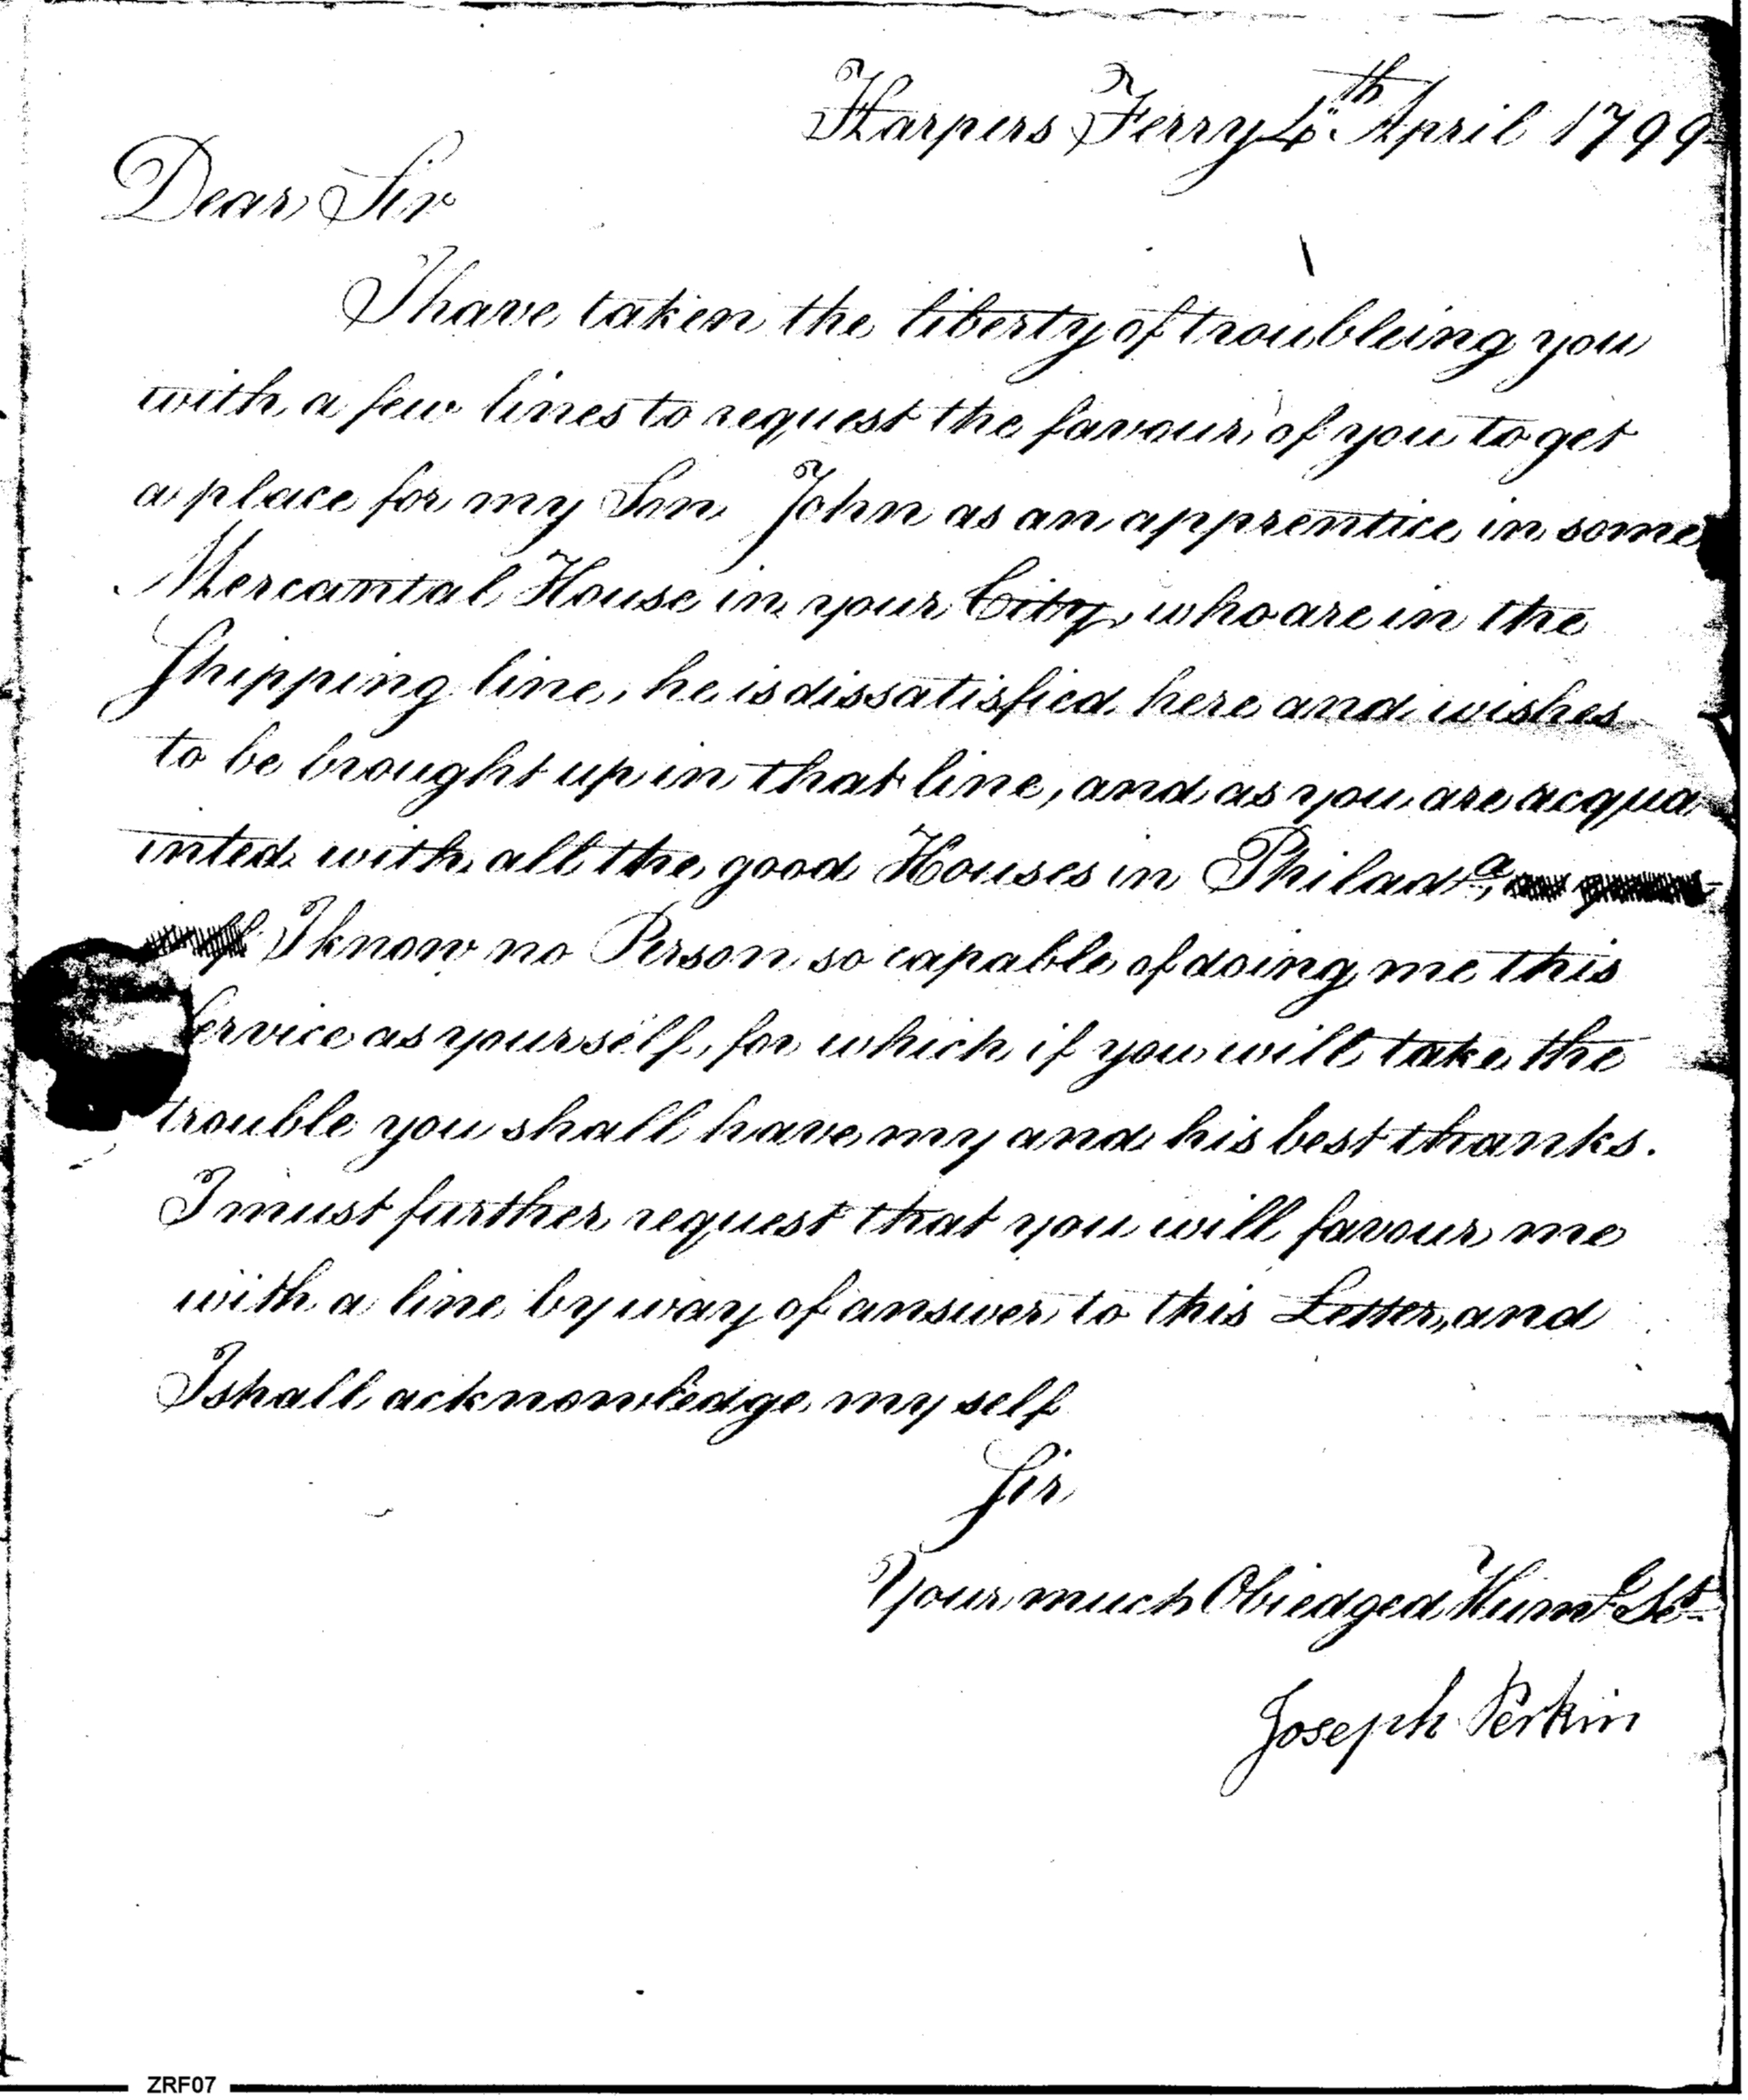 Harpers Ferry 4th April 1799
Dear Sir
I have taken the liberty of troubleing you
with a few lines to request the favour of you to get
a place for my Son John as an apprentice in some
Mercantal House in your City, who are in the
Shipping line, he is dissatisfied here and wishes
to be brought up in that line, and as you are acqua
inted with all the good Houses in Philada,
I know no Person so capable of doing me this
Service as yourself, for which if you will take the
trouble you shall have my and his best thanks.
I must further request that you will favour me
with a line by way of answer to this Letter, and
I shall acknowledge my self
Sir
Your much Obiedged Humbl St
Joseph Perkin
ZRF07